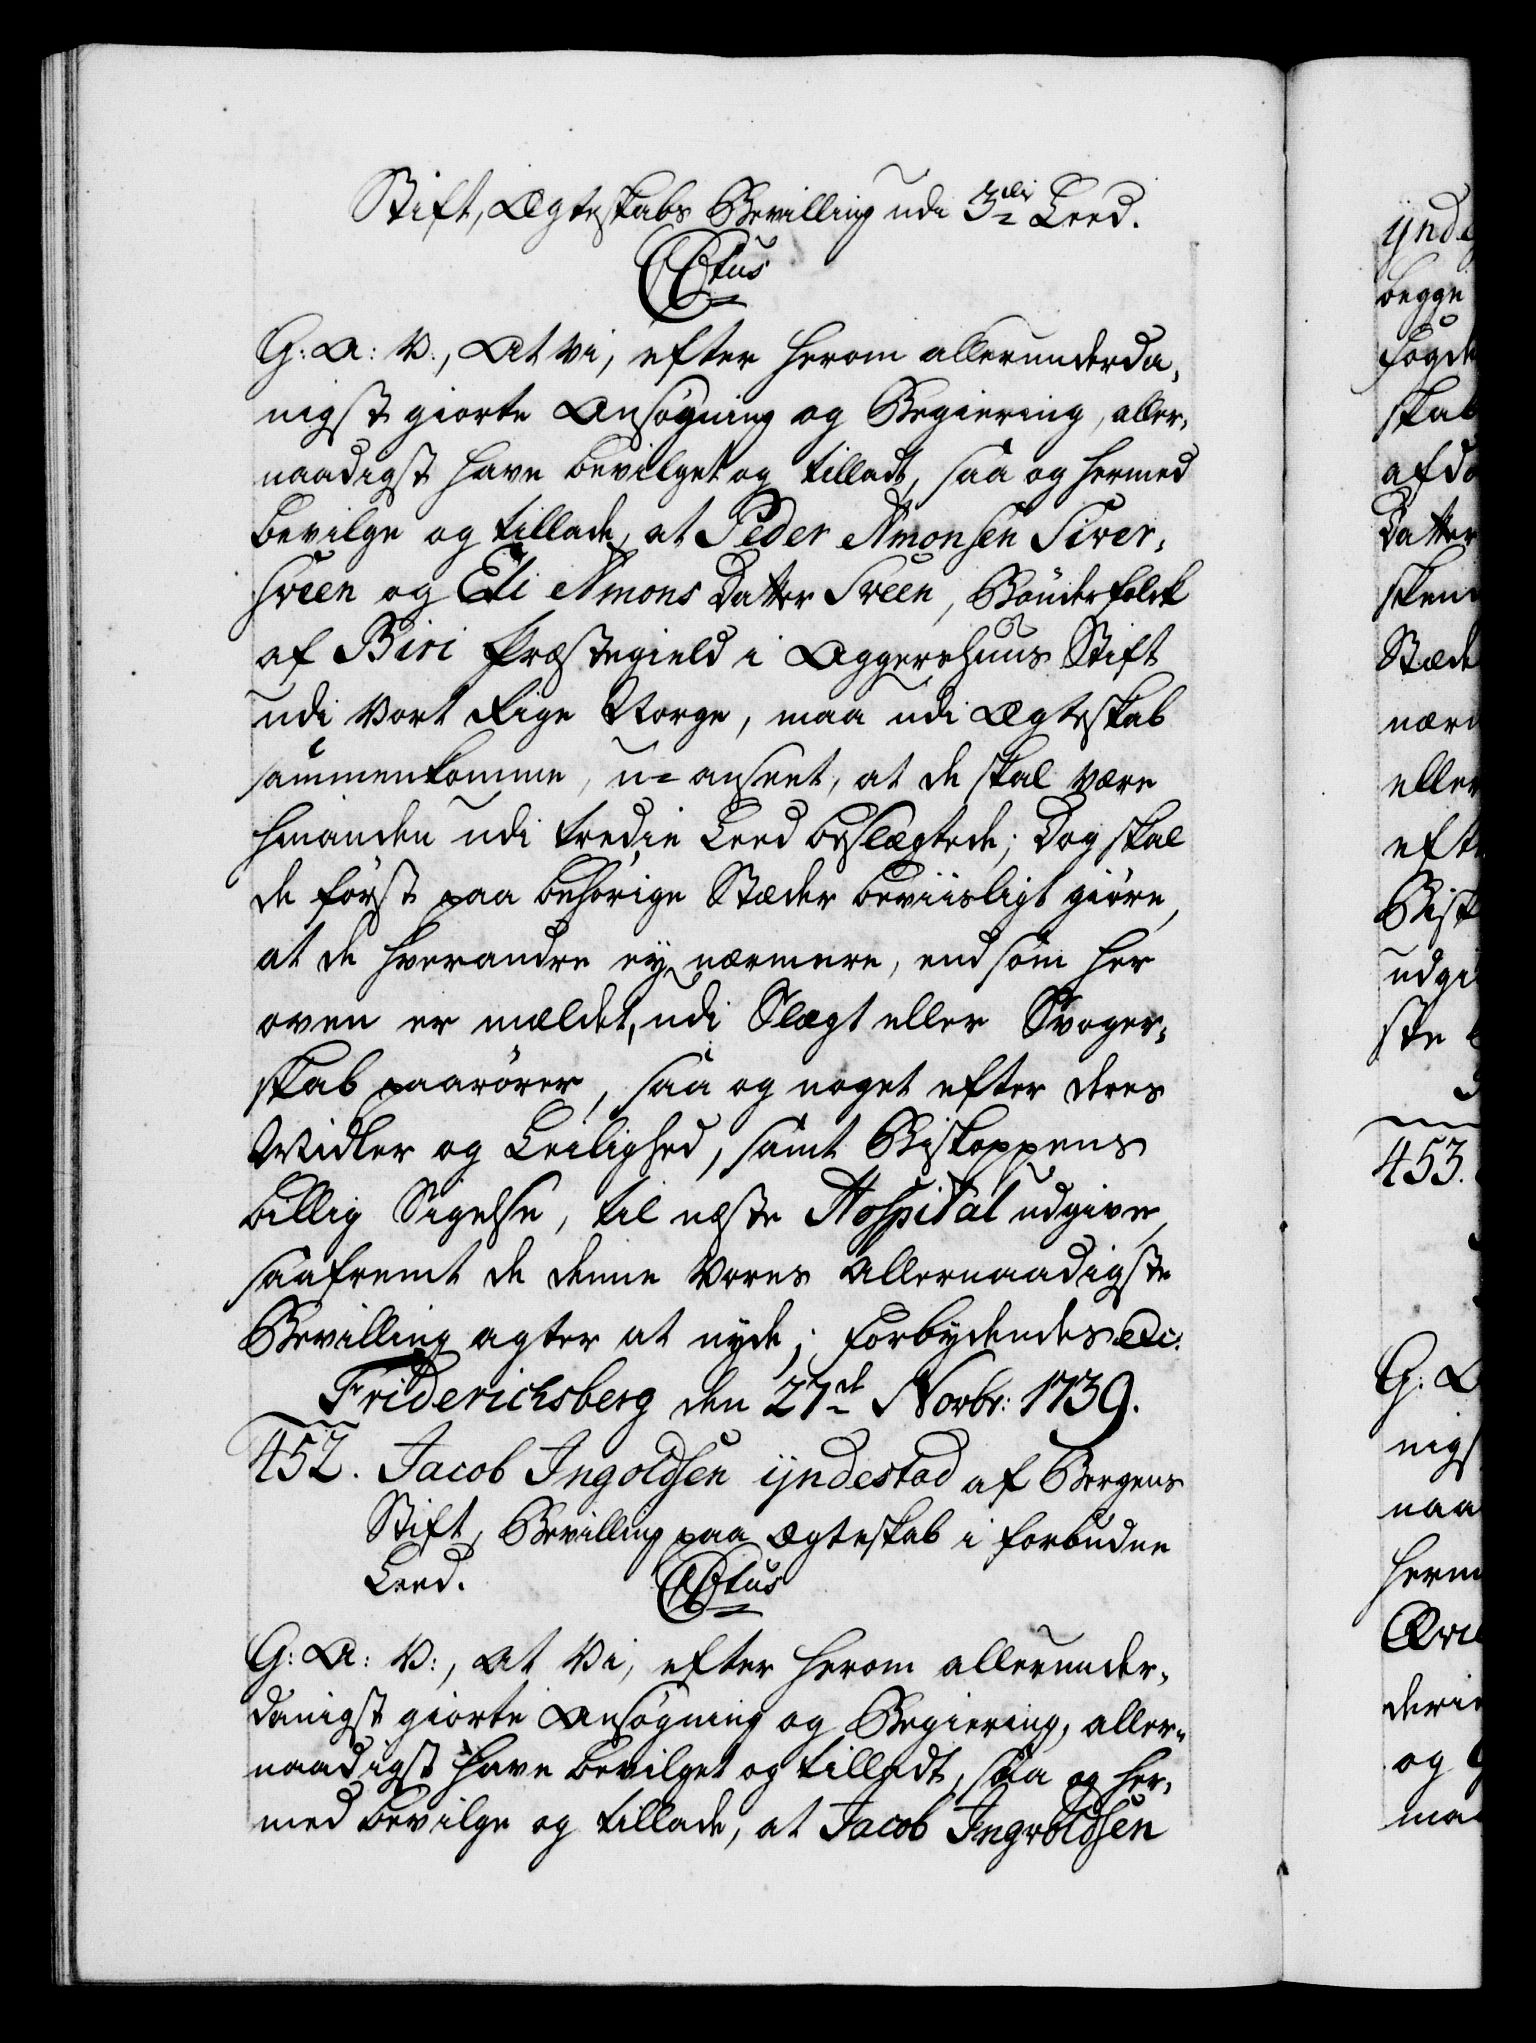 Stift, Ægteskabs Bevilling udi 3die Leed.
C6tus
G: A: V:, At vi, efter herom allerunderda-
nigst giorte Ansøgning og Begiering, aller-
naadigst have bevilget og tilladt, saa og hermed
bevilge og tillade, at Peder Amonsen Siver-
sveen og Eli Amons Datter Sveen, Bønderfolck
af Biri Præstegield i Aggershuus Stift
udi vort Rige Norge, maa udi Ægteskab
sammenkomme, u-anseet, at de skal være
hinanden udi tredie Leed beslægtede; Dog skal
de først paa behørige Stæder beviisligt giøre,
at de hverandre ey nærmere, end som her
oven er meldet, udi Slægt eller Svoger-
skab paarører, saa og noget efter deres
Midler og Leilighed, samt Biskoppens
billig Sigelse, til næste Hospital udgive,
saafremt de denne Vores Allernaadigste
Bevilling agter at nyde; Forbydendes etc:
Friderichsberg den 27de Novbr: 1739.
452. Jacob Ingoldsen ijndestad af Bergens
Stift, Bevilling paa Ægteskab i forbudne
Leed. C6tus
G: A: V:, At Vi, efter herom allerunder-
danigst giorte Ansøgning og Begiering, aller-
naadigst have bevilget og tilladt, saa og her-
med bevilge og tillade, at Jacob Ingvoldsen
ynde
begge
Fogde
skab
afdø
Datter
sken
Stæde
nærm
eller
efte
Bisk
udgi
ste
453.
G: A
nigs
naa
herm
deri
og
maa